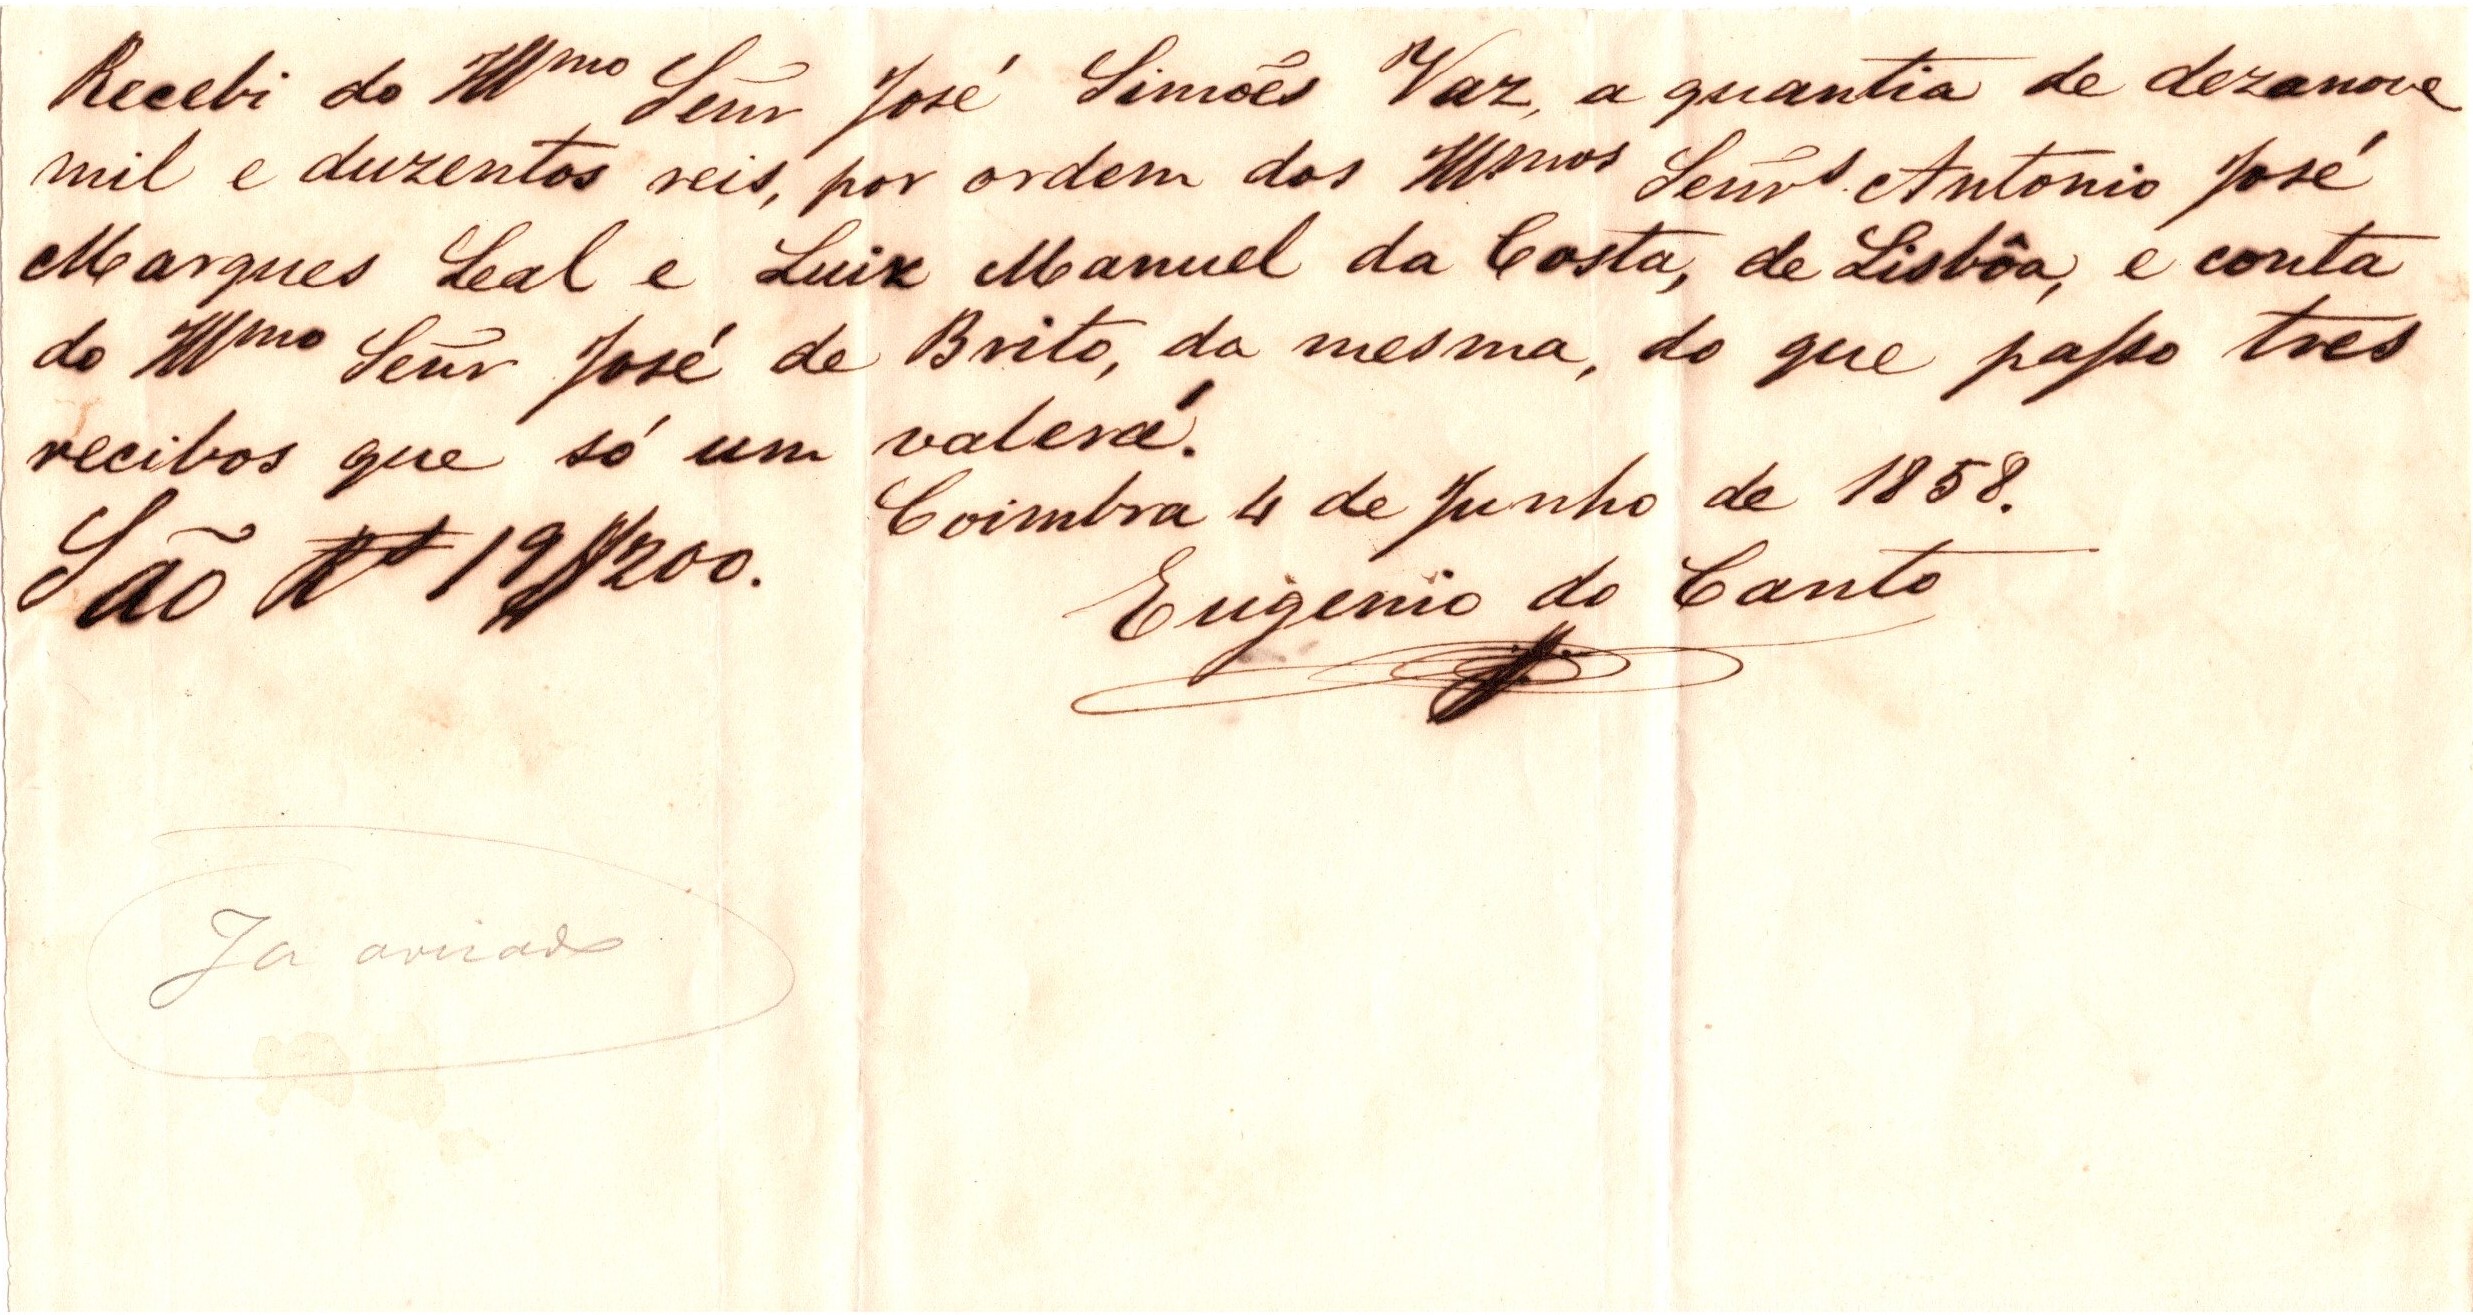 Recebi do Illmo Senr José Simões Vaz, a quantia de dezanove
mil e duzentos reis, por ordem dos Illmos Senrs. Antonio José
Marques Leal e Luiz Manuel da Costa, de Lisbôa, e conta
do Illmo Senr José de Brito, da mesma, do que passo tres
recibos que só um valerá.
Coimbra 4 de Junho de 1858.
São Rs 19$200.
Eugenio do Canto
Ja avisado